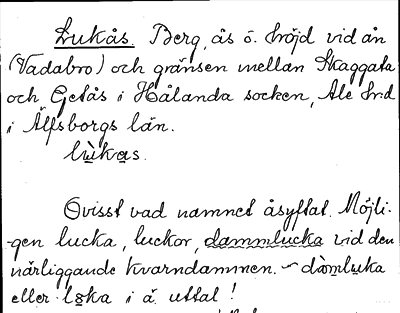 Lukås. Berg, ås o. höjd vid ån
(Vadabro) och gränsen mellan Skaggata
och Getås i Hålanda socken, Ale hd
i Älfsborgs län.
lùkas.
Ovisst vad namnet åsyftat. Möjli-
-gen lucka, luckor, dammlucka vid den
närliggande kvarndammen. – dàmluka
eller lska i ä uttal!